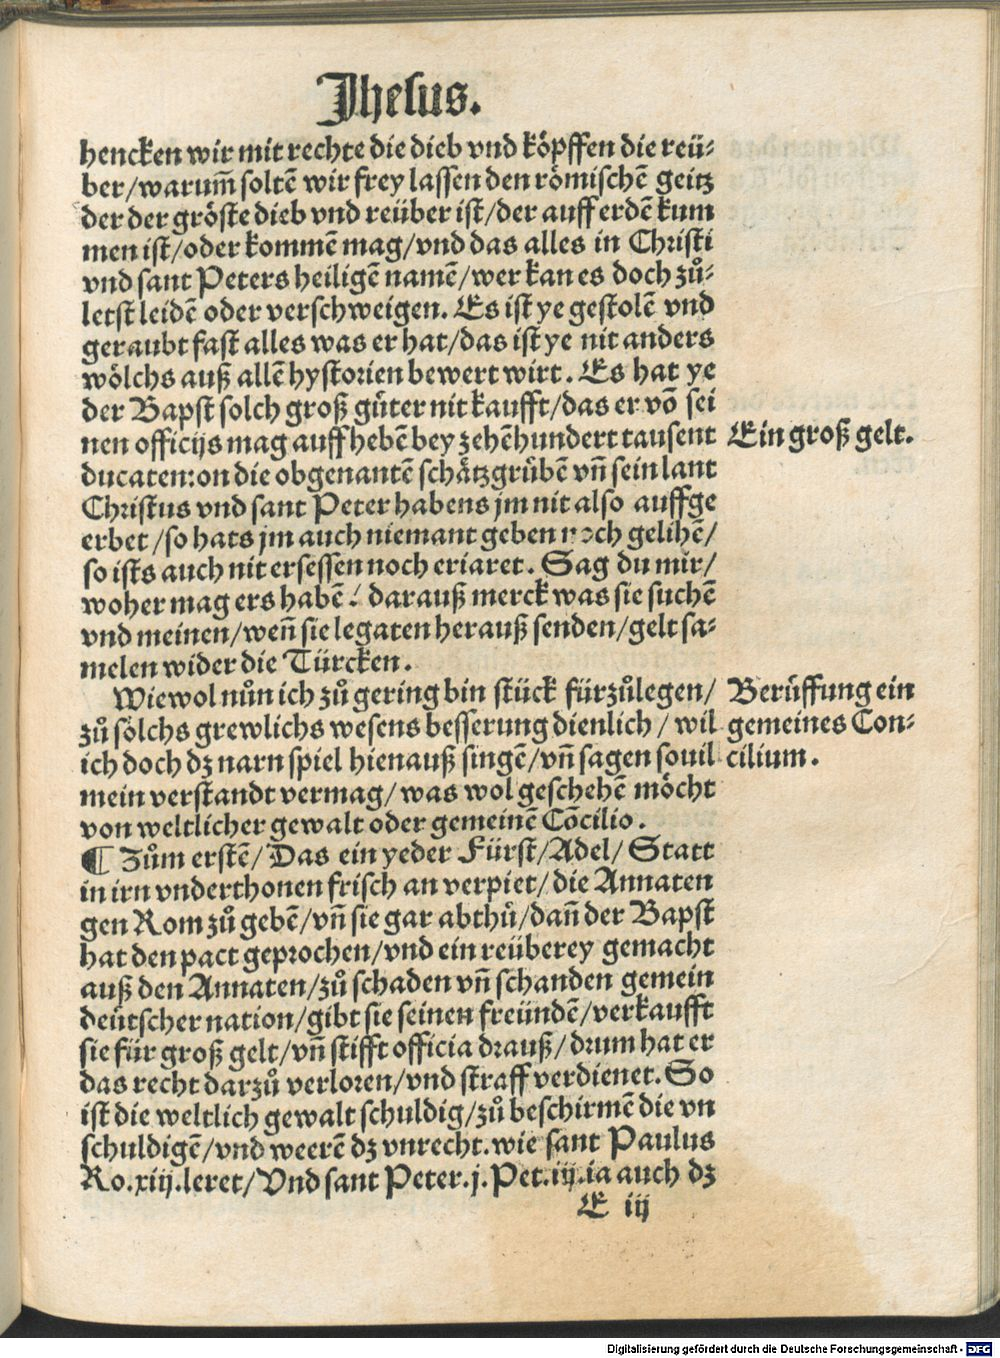 Jhesus.
hencken wir mit rechte die dieb vnd köpffen die reü⸗
ber/warum̃ soltẽ wir frey lassen den römischẽ geitz
der der gröste dieb vnd reüber ist/der auff erdẽ kum
men ist/oder kommẽ mag/vnd das alles in Christi
vnd sant Peters heiligẽ namẽ/wer kan es doch zů⸗
letst leidẽ oder verschweigen. Es ist ye gestolẽ vnd
geraubt fast alles was er hat/das ist ye nit anders
wölchs auß allẽ hystorien bewert wirt. Es hat ye
der Bapst solch groß gůter nit kaufft/das er võ sei
nen officijs mag auffhebẽ bey zehẽhundert tausent
Ein groß gelt.
ducaten:on die obgenantẽ schätzgrůbẽ vñ sein lant
Christus vnd sant Peter habens jm nit also auffge
erbet/so hats jm auch niemant geben noch gelihẽ/
so ists auch nit ersessen noch eriaret. Sag du mir/
woher mag ers habẽ? darauß merck was sie suchẽ
vnd meinen/weñ sie legaten herauß senden/gelt sa⸗
melen wider die Türcken.
Wiewol nůn ich zů gering bin stück fürzůlegen/
zů sölchs grewlichs wesens besserung dienlich/wil
ich doch dz narn spiel hienauß singẽ/vñ sagen souil
mein verstandt vermag/was wol geschehẽ möcht
von weltlicher gewalt oder gemeinẽ Cõcilio.
Berůffung ein
gemeines Con⸗
cilium.
¶ Zům erstẽ/Das ein yeder Fürst/Adel/Statt
in irn vnderthonen frisch an verpiet/die Annaten
gen Rom zů gebẽ/vñ sie gar abthů/dañ der Bapst
hat den pact geprochen/vnd ein reüberey gemacht
auß den Annaten/zů schaden vñ schanden gemein
deütscher nation/gibt sie seinen freündẽ/verkaufft
sie für groß gelt/vñ stifft officia drauß/drum hat er
das recht darzů verloren/vnd straff verdienet. So
ist die weltlich gewalt schuldig/zů beschirmẽ die vn
schuldigẽ/vnd weerẽ dz vnrecht.wie sant Paulus
Ro.xiij.leret/Vnd sant Peter.j.Pet.iij.ia auch dz
E iij
Digitalisierung gefördert durch die Deutsche Forschungsgemeinschaft - DFG